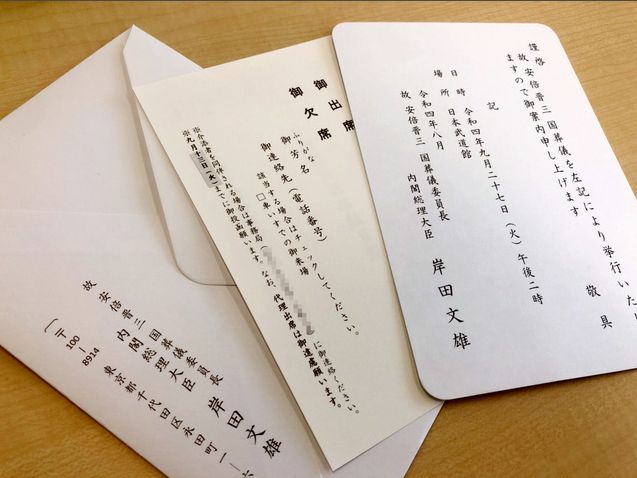 謹啓
故 安倍晋三 国葬儀を左記により挙行いたし
ますので御案内申し上げます
敬具
記
日時 令和四年九月二十七日(火)午後二時
場所 日本武道館
令和四年八月
故 安倍晋三 国葬儀委員長
内閣総理大臣 岸田文雄
御出席
御欠席
ふりがな
御芳名
御連絡先(電話番号)
該当する場合はチェックしてください。
□車いすでの御来場
※介添者を同伴される場合は事務局
に御連絡ください。
※九月十三日(火)までに御投函願います。なお、代理出席は御遠慮願います。
故 安倍晋三 国葬儀委員長
内閣総理大臣 岸田文雄
(〒100-8914 東京都千代田区永田町一-六